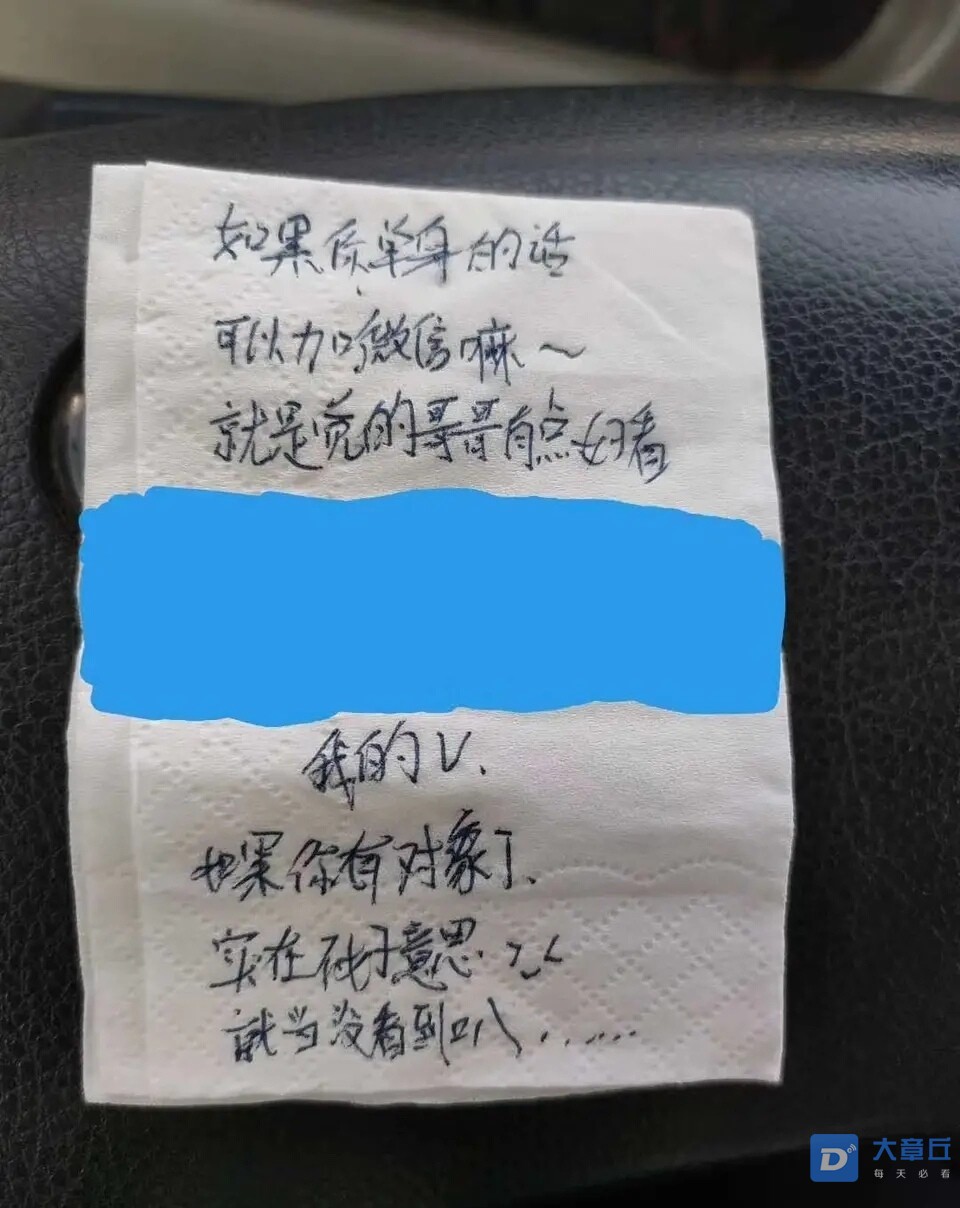 如果质单身的话
可以加微信嘛～
就是觉的哥哥有点好看
我的V.
如果你有对象了.
实在不好意思.
就当没看到叭......
D
大章丘
每天必看